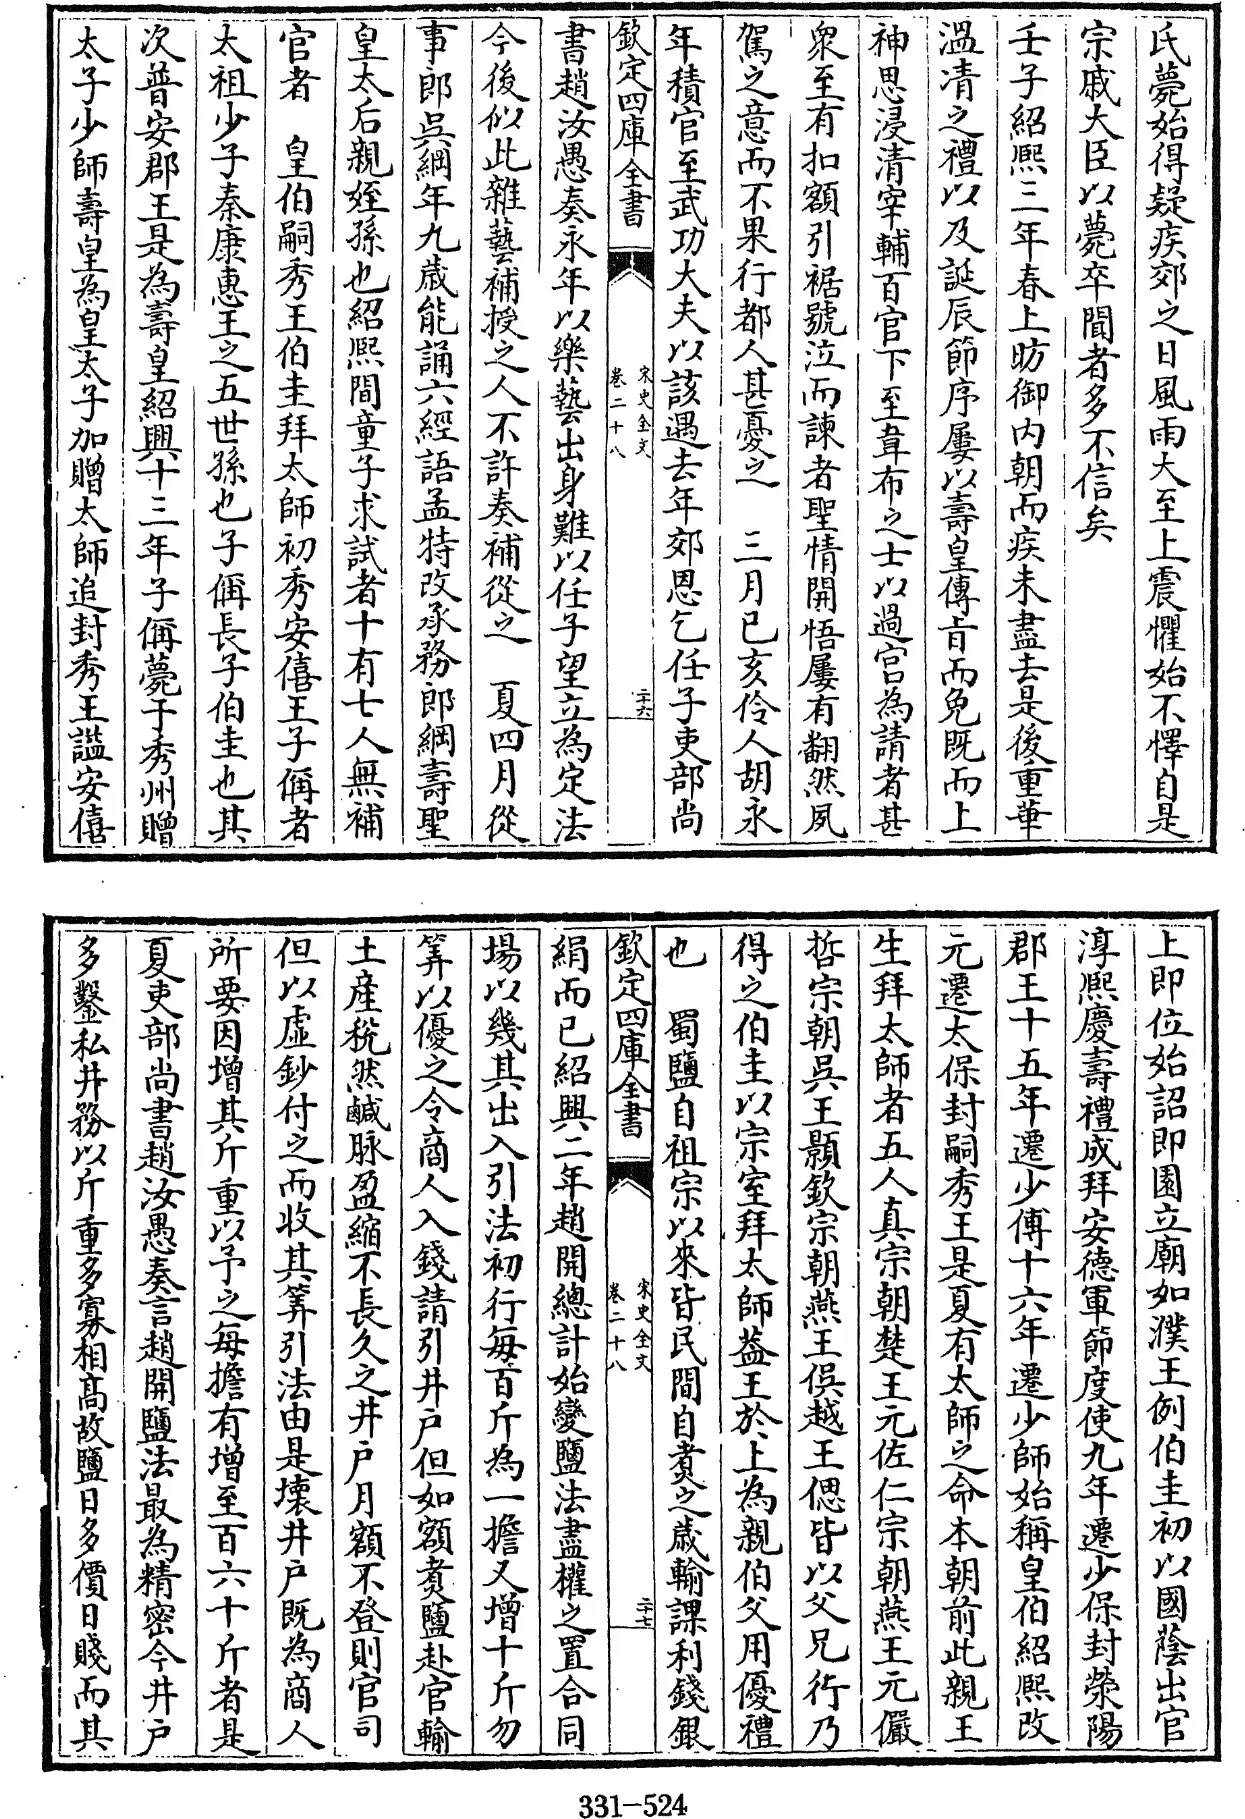 氏薨始得疑疾郊之日風雨大至上震懼始不懌自是
宗戚大臣以薨卒聞者多不信矣
壬子紹熙三年春上昉御内朝而疾未盡去是後重華
溫凊之禮以及誕辰節序屢以壽皇傳㫖而免既而上
神思浸清宰輔百官下至韋布之士以過宫為請者甚
衆至有扣額引裾號泣而諫者聖情開悟屢有翻然夙
駕之意而不果行都人甚憂之　三月已亥伶人胡永
年積官至武功大夫以該遇去年郊恩乞任子吏部尚
欽定四庫全書
宋史全文
卷二十八
二十六
書趙汝愚奏永年以樂藝出身難以任子望立為定法
今後似此雜藝補授之人不許奏補從之　夏四月從
事郎吳綱年九歲能誦六經語孟特改承務郎綱壽聖
皇太后親姪孫也紹熙間童子求試者十有七人無補
官者　皇伯嗣秀王伯圭拜太師初秀安僖王子偁者
太祖少子秦康惠王之五世孫也子偁長子伯圭也其
次普安郡王是為壽皇紹興十三年子偁薨于秀州贈
太子少師壽皇為皇太子加贈太師追封秀王諡安僖
上即位始詔即園立廟如濮王例伯圭初以國蔭出官
淳熙慶壽禮成拜安德軍節度使九年遷少保封榮陽
郡王十五年遷少傅十六年遷少師始稱皇伯紹熙改
元遷太保封嗣秀王是夏有太師之命本朝前此親王
生拜太師者五人真宗朝楚王元佐仁宗朝燕王元儼
哲宗朝吳王顥欽宗朝燕王俁越王偲皆以父兄行乃
得之伯圭以宗室拜太師葢王於上為親伯父用優禮
也　蜀鹽自祖宗以來皆民間自煑之歲輸課利錢銀
欽定四庫全書
宋史全文
卷二十八
二十七
絹而已紹興二年趙開總計始變鹽法盡榷之置合同
場以幾其出入引法初行每百斤為一擔又增十斤勿
筭以優之令商人入錢請引井户但如額煑鹽赴官輸
土産税然鹹脉盈縮不長久之井户月額不登則官司
但以虛鈔付之而收其筭引法由是壊井户既為商人
所要因増其斤重以予之每擔有增至百六十斤者是
夏吏部尚書趙汝愚奏言趙開鹽法最為精密今井户
多鑿私井務以斤重多寡相髙故鹽日多價日賤而其
331-524